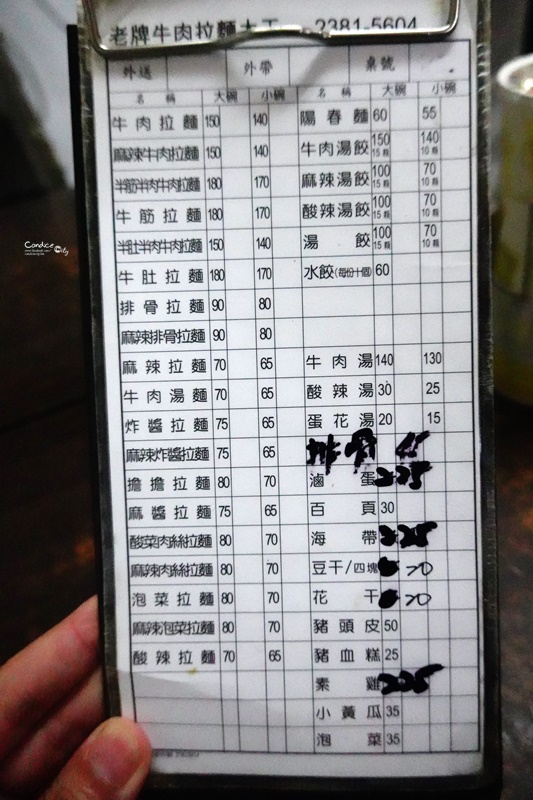 老牌牛肉拉麵大王 2381-5604
外送 外帶 桌號
名稱 大碗 小碗 名稱 大碗 小碗
牛肉拉麵 150 140
麻辣牛肉拉麵 150 140
半筋半肉牛肉拉麵 180 170
牛筋拉麵 180 170
半肚半肉牛肉拉麵 150 140
牛肚拉麵 180 170
排骨拉麵 90 80
麻辣排骨拉麵 90 80
麻辣拉麵 70 65
牛肉湯麵 70 65
炸醬拉麵 75 65
麻辣炸醬拉麵 75 65
擔擔拉麵 80 70
麻醬拉麵 75 65
酸菜肉絲拉麵 80 70
麻辣肉絲拉麵 80 70
泡菜拉麵 80 70
麻辣泡菜拉麵 80 70
酸辣拉麵 70 65
陽春麵 60 55
牛肉湯餃 150 15顆 140 10顆
麻辣湯餃 100 15顆 70 10顆
酸辣湯餃 100 15顆 70 10顆
湯餃 100 15顆 70 10顆
水餃(每份十個) 60
牛肉湯 140 130
酸辣湯 30 25
蛋花湯 20 15
排骨
滷蛋
百頁 30
海帶
豆干/四塊 20
花干 20
豬頭皮 50
豬血糕 25
素雞
小黃瓜 35
泡菜 35
Candice City